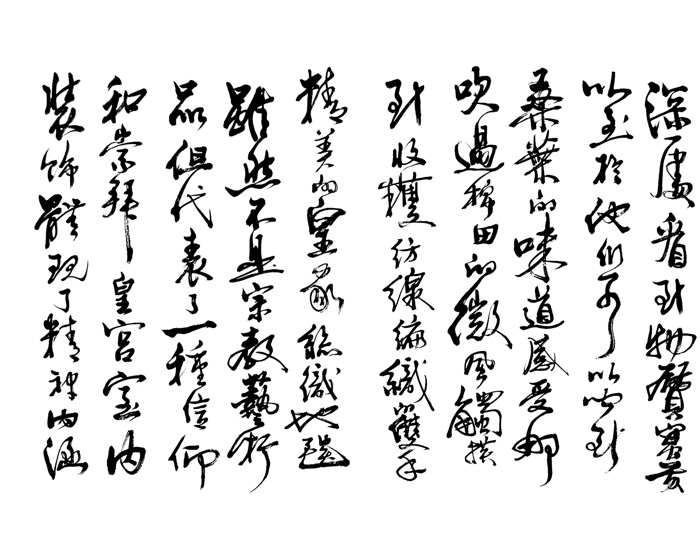 深處看到物質
以至於他们可以闻到
桑葉的味道感受那
吹過田的微風觸摸
到收穫紡線編織雙手
精美的皇家織地毯
雖然不是宗教藝術
品但代表了一種信仰
和崇拜皇宮室内
裝飾體現了精神内涵